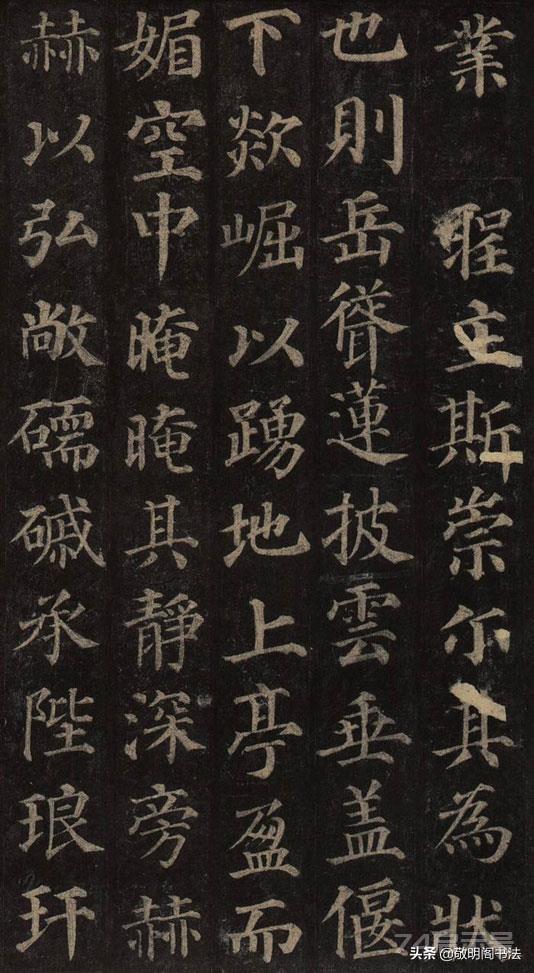 業 聖主斯崇尒其為狀
也則岳聳蓮披雲垂盖偃
下欻崛以踴地上亭盈而
媚空中晻晻其靜深旁赫
赫以弘敞礝磩承陛琅玕
头条 @敬明阁书法